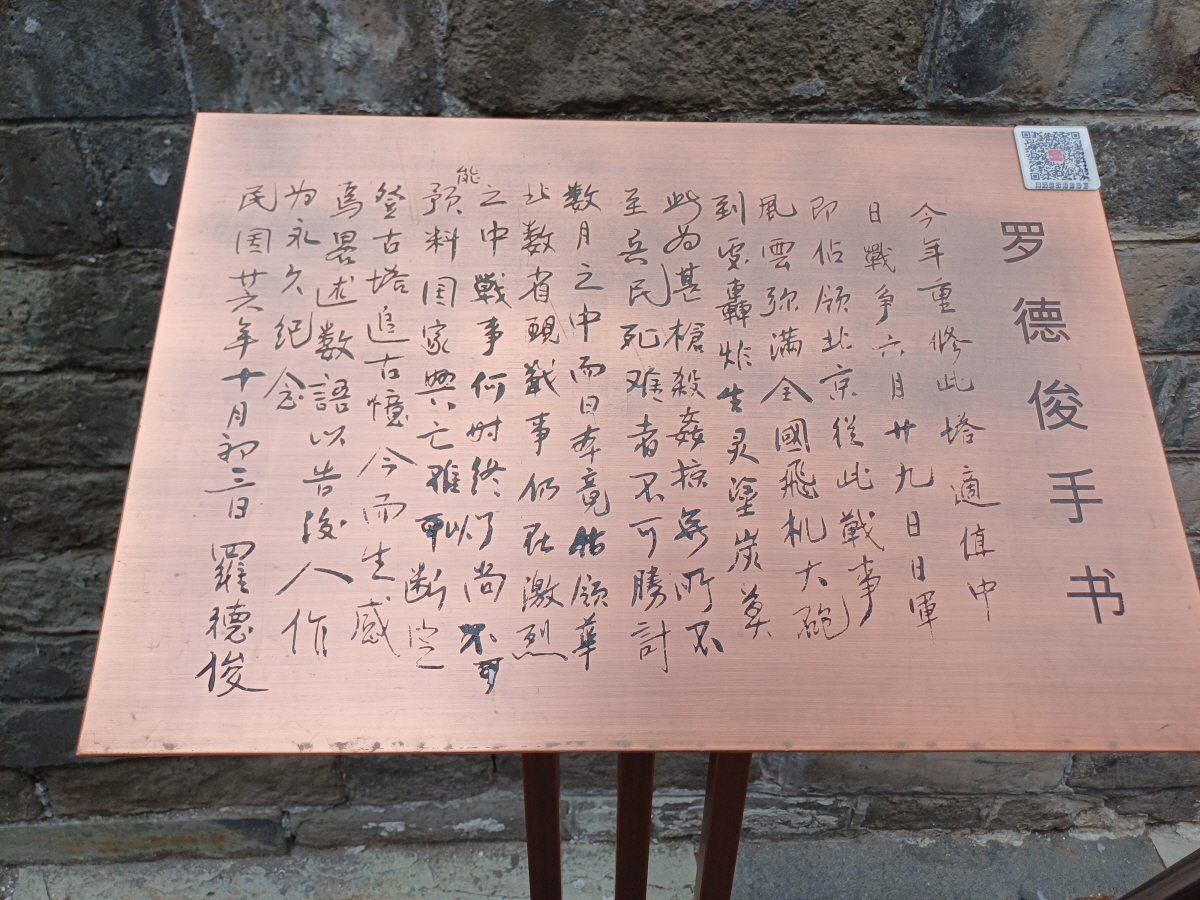 罗德俊手书
今年重修此塔適值中
日戰争六月廿九日日軍
即佔領北京從此戰事
風雲弥满全國飛机大砲
到處轟炸生灵塗炭莫
此为甚槍殺姦掠無所不
至兵民死难者不可勝計
数月之中而日本竟佔領華
北数省現戰事仍在激烈
之中戰事何时终了尚不可
能预料国家興亡难可以断定
登古塔追古憶今而生感
焉畧述数語以告後人作
为永久纪念
民国廿六年十月初三日 羅德俊